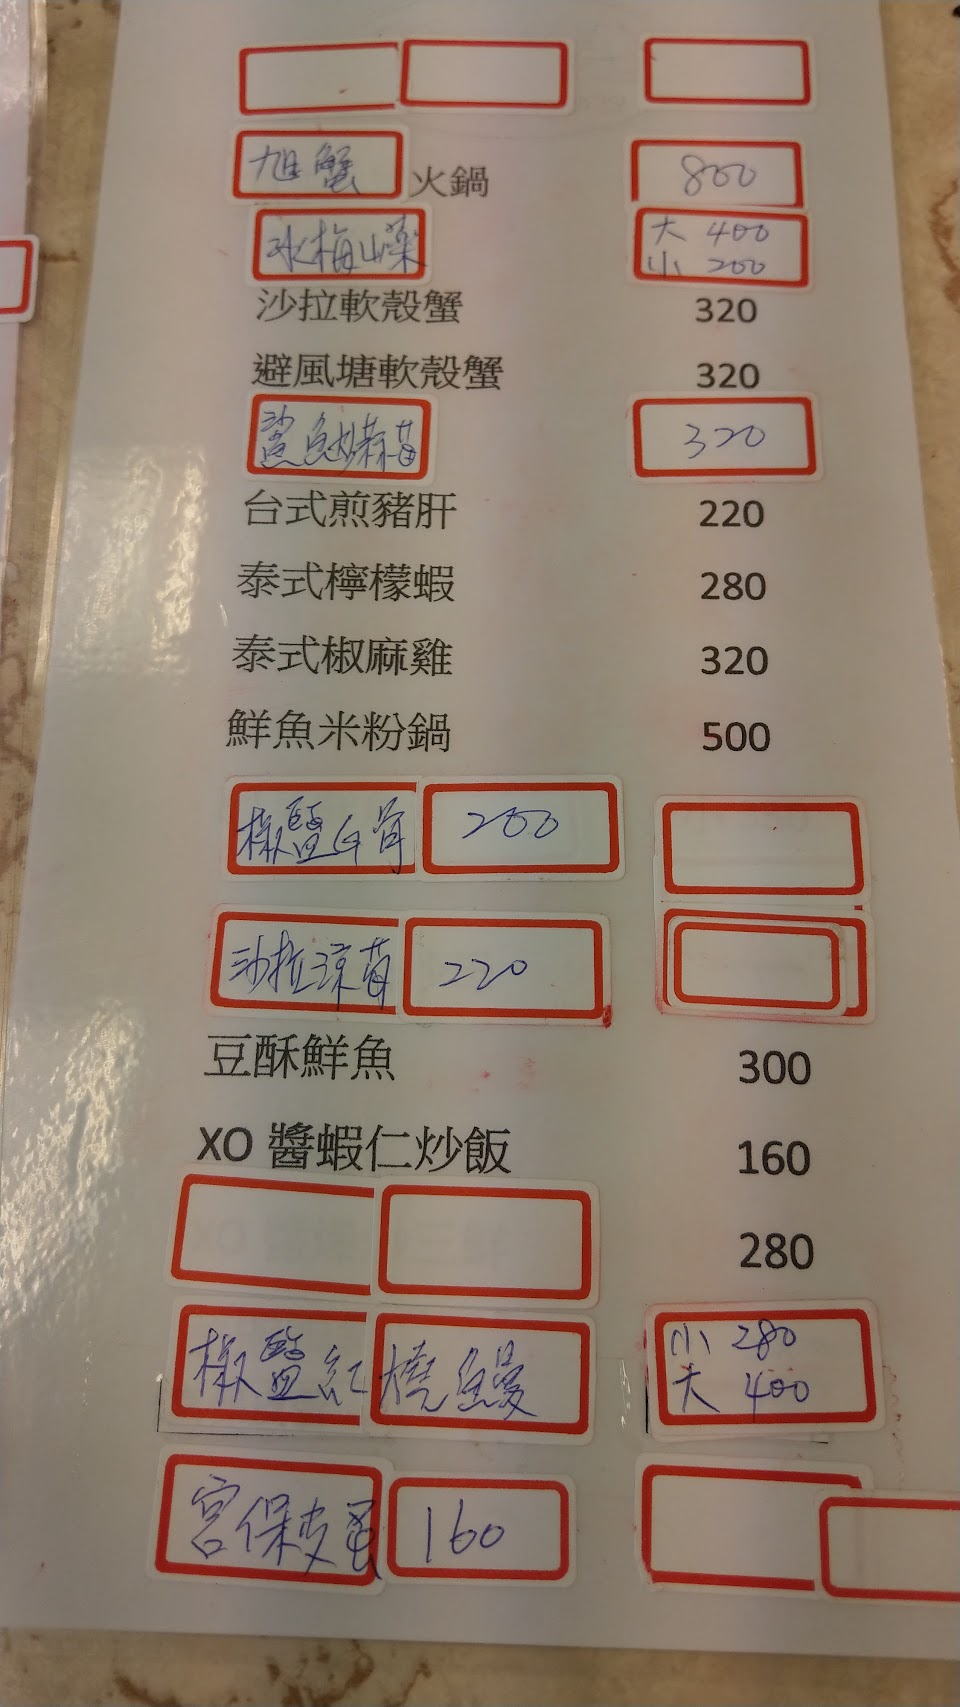 旭蟹 火鍋 800
冰梅山藥 大 400
小 200
沙拉軟殼蟹 320
避風塘軟殼蟹 320
鯊魚炒蒜苗 320
台式煎豬肝 220
泰式檸檬蝦 280
泰式椒麻雞 320
鮮魚米粉鍋 500
椒鹽 200
沙拉涼筍 220
豆酥鮮魚 300
XO 醬蝦仁炒飯 160
280
椒鹽紅燒鰻 小 280
大 400
宮保皮蛋 160